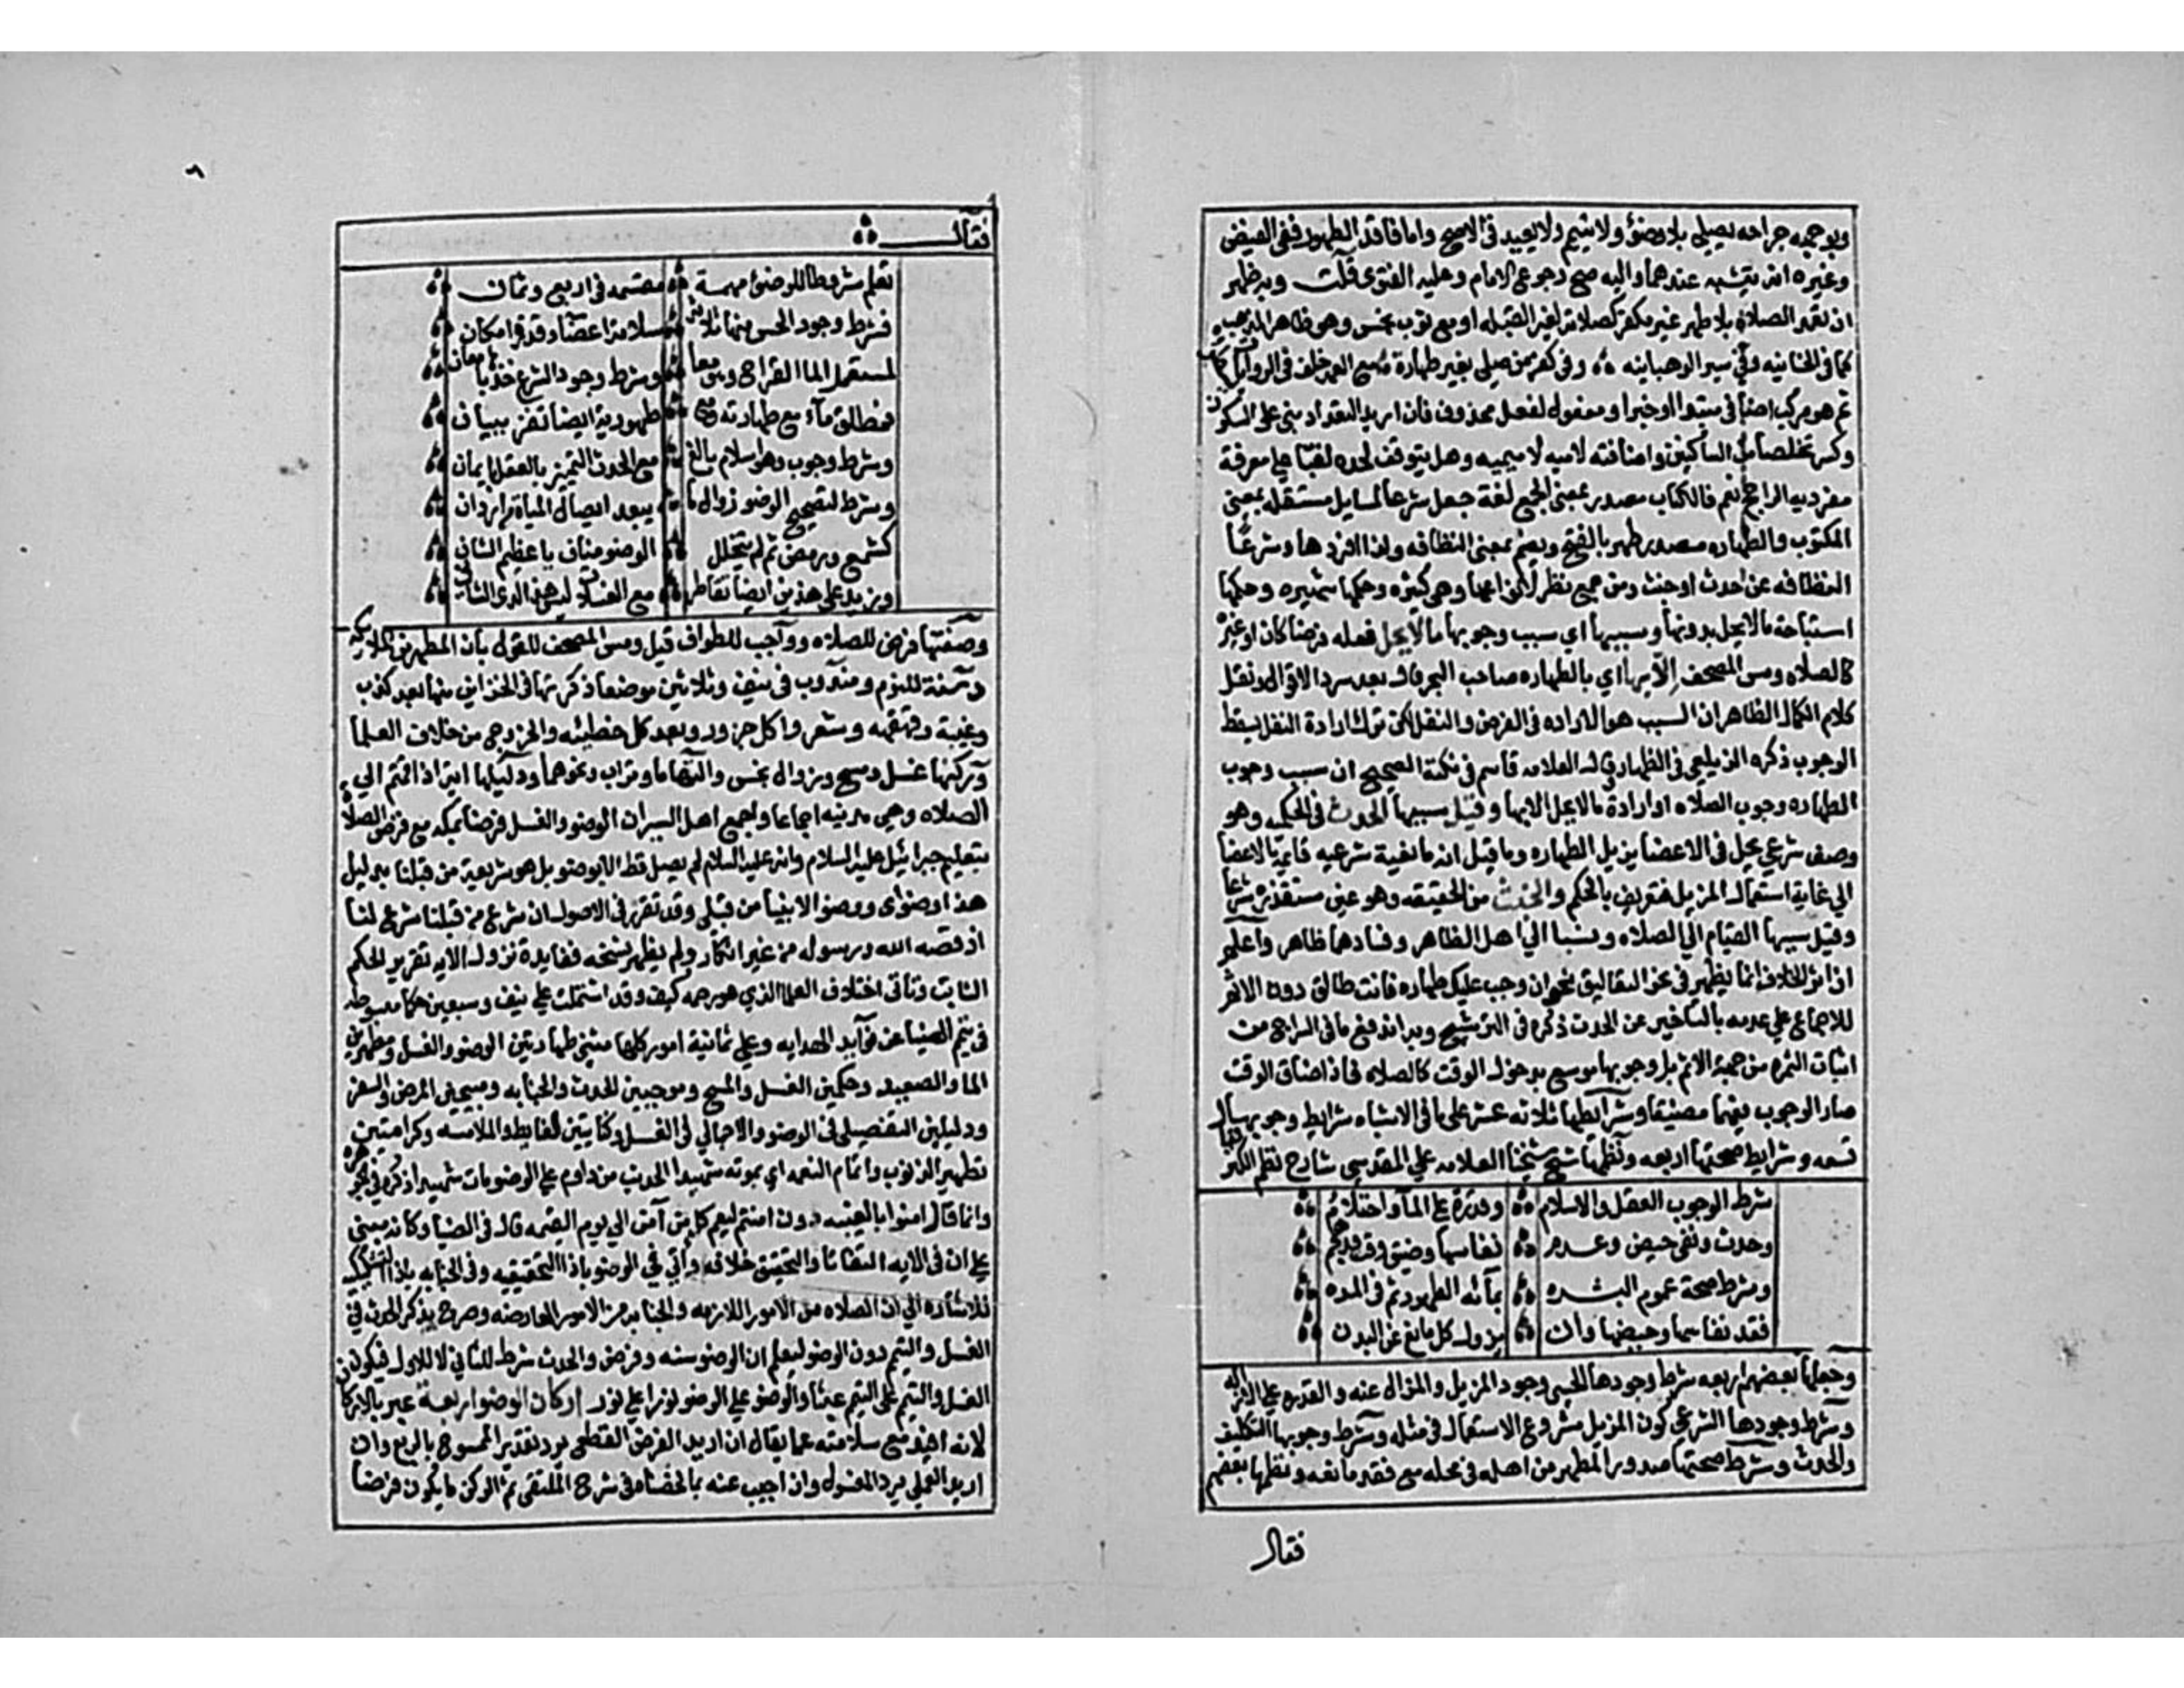 وبوجهه جراحه يصلي بلا وضوء ولا تيمم ولا يعيد في الاصح واما فاقد الطهورين ففي الفيض
وغيره انه يتشبه عندهما واليه صح رجوع الامام وعليه الفتوى قلت وبه ظهر
ان تعمد الصلاة بلا طهر غير مكفر كصلاته لغير القبله او مع ثوب نجس وهو ظاهر المذهب
كما في الخانيه وفي سير الوهبانيه وفي كفر من صلى بغير طهارة مع العمد خلف في الروايات كتاب
ثم هو مركب اضافي مبتدا او خبر او مفعول لفعل محذوف فان اريد التعداد بني على السكون
وكسر تخلصا من الساكنين واضافته لاميه لا ميميه وهل يتوقف لحده لقبا على معرفة
مفرديه الراجح نعم فالكتاب مصدر بمعنى الجمع لغة جعل شرعا لمسايل مستقله بمعنى
المكتوب والطهاره مصدر طهر بالفتح ويضم بمعنى النظافه ولذا افردها وشرعا
النظافه عن حدث او خبث ومن جمع نظر لانواعها وهي كثيره وحكمها شهيره وحكمها
استباحة ما لا يحل بدونها وسببها اي سبب وجوبها ما لا يحل فعله فرضا كان او غيره
كالصلاه ومس المصحف الا بها اي بالطهاره صاحب البحر قال بعد سرد الاقوال ونقل
كلام الكمال الظاهر ان السبب هو الاراده في الفرض والنفل لكن بترك ارادة النفل يسقط
الوجوب ذكره الزيلعي في الظهار وقال العلامه قاسم في نكته الصحيح ان سبب وجوب
الطهاره وجوب الصلاه او ارادة ما لا يحل الا بها وقيل سببها الحدث في الحكميه وهو
وصف شرعي يحل في الاعضا يزيل الطهاره وما قيل انه مانعية شرعيه قايمة بالاعضا
الي غاية استعمال المزيل فتعريف بالحكم والخبث من الحقيقه وهو عين مستقذره شرعا
وقيل سببها القيام الى الصلاه ونسبا الى اهل الظاهر وفسادها ظاهر واعلم
ان اثر الخلاف انما يظهر في نحو التعاليق نحو ان وجب عليك طهاره فانت طالق دون الاثم
للاجماع على عدمه بالتأخير عن الحدث ذكره في التوشيح وبه اندفع ما في السراج من
اثبات الثمره من جهة الاثم بل وجوبها موسع بدخول الوقت كالصلاه فاذا ضاق الوقت
صار الوجوب فيهما مضيقا وشرايطها ثلاثه عشر على ما في الاشباه شرايط وجوبها
تسعه وشرايط صحتها اربعه ونظمها شيخ شيخنا العلامه علي المقدسي شارح نظم الكنز
شرط الوجوب العقل والاسلام وقدرة على الما واحتلام
وحدث ونفي حيض وعدم نفاسها وضيق وقت
وشرط صحة عموم البشره بمائه الطهور ثم في المره
فقد نفاسها وحيضها وان يزول كل مانع عن البدن
وجعلها بعضهم اربعه شرط وجودها الحسي وجود المزيل والمزال عنه والقدره على الازاله
وشرط وجودها الشرعي كون المزيل مشروع الاستعمال في مثله وشرط وجوبها التكليف
والحدث وشرط صحتها صدور المطهر من اهله في محله مع فقد مانعه ونظمها بعضهم
فقال
فقال
تعلم شروطا للوضوء مهمة مقسمه في اربع وثمان
فشرط وجود الحس منها ثلاثة سلامة اعضاء وقدرة امكان
لمستعمل الما القراح وهو معا وشرط وجود الشرع خذها بامعان
فمطلق ماء مع طهارته ومع طهورية ايضا تفز ببيان
وشرط وجوب وهو اسلام بالغ مع الحدث التمييز بالعقل يا عان
وشرط لتصحيح الوضوء زوال ما يبعد ايصال المياه من ادران
كشمع ورمص ثم لم يتخلل الوضو مناف يا عظيم الشان
وزيد على هذين ايضا تقاطر مع الغسلات ليس هذا لدى الثاني
وصفتها فرض للصلاه وواجب للطواف قيل ومس المصحف للقول بان المطهرين الملايكه
وسنة للنوم ومندوب في نيف وثلاثين موضعا ذكرتها في الخزاين منها بعد كذب
وغيبة وقهقهه وشعر واكل جزور وبعد كل خطيئه والخروج من خلاف العلما
وركنها غسل ومسح وزوال نجس والتها ما وتراب ونحوهما ودليلها اية اذا قمتم الى
الصلاه وهي مدنيه اجماعا واجمع اهل السير ان الوضو والغسل فرضا بمكه مع فرض الصلاة
بتعليم جبرائيل عليه السلام وانه عليه السلام لم يصل قط الا بوضو بل هو شريعة من قبلنا بدليل
هذا وضوئي ووضو الانبيا من قبلي وقد تقرر في الاصول ان شرع من قبلنا شرع لنا
اذ قصه الله ورسوله من غير انكار ولم يظهر نسخه ففايدة نزول الايه تقرير الحكم
الثابت وتأتي اختلاف العلما الذي هو رحمه كيف وقد اشتملت على نيف وسبعين حكما مبسوطه
في تيمم الضيا عن فوآيد الهدايه وعلى ثمانية امور كلها مثنى طهارتين الوضو والغسل ومطهرين
الما والصعيد وحكمين الغسل والمسح وموجبين للحدث والجنابه ومبيحين المرض والسفر
ودليلين التفصيلي في الوضو والاجمالي في الغسل وكنايتين الغايط والملامسه وكرامتين
تطهير الذنوب واتمام النعمه اي بموته شهيدا لحديث من داوم على الوضو مات شهيدا ذكره في الجوهره
وانما قال امنوا بالغيبه دون امنتم ليعم كل من آمن الى يوم القيمه قال في الضيا وكانه مبني
على ان في الايه التفاتا والتحقيق خلافه وأتي في الوضو باذا التحقيقيه وفي الجنابه بان التشكيكيه
للاشاره الى ان الصلاه من الامور اللازمه والجنابه من الامور العارضه وصرح بذكر الحدث في
الغسل والتيمم دون الوضو ليعلم ان الوضو سنه وفرض والحدث شرط للثاني لا للاول فيكون
الغسل والتيمم على التيمم عبثا والوضو على الوضو نورا على نور اركان الوضوا ربعة عبر بالاركان
لانه افيد مع سلامته عما يقال ان اريد الفرض القطعي يرد تقدير الممسوح بالربع وان
اريد العملي يرد المغسول وان اجيب عنه بما لخصناه في شرح الملتقى ثم الركن ما يكون فرضا